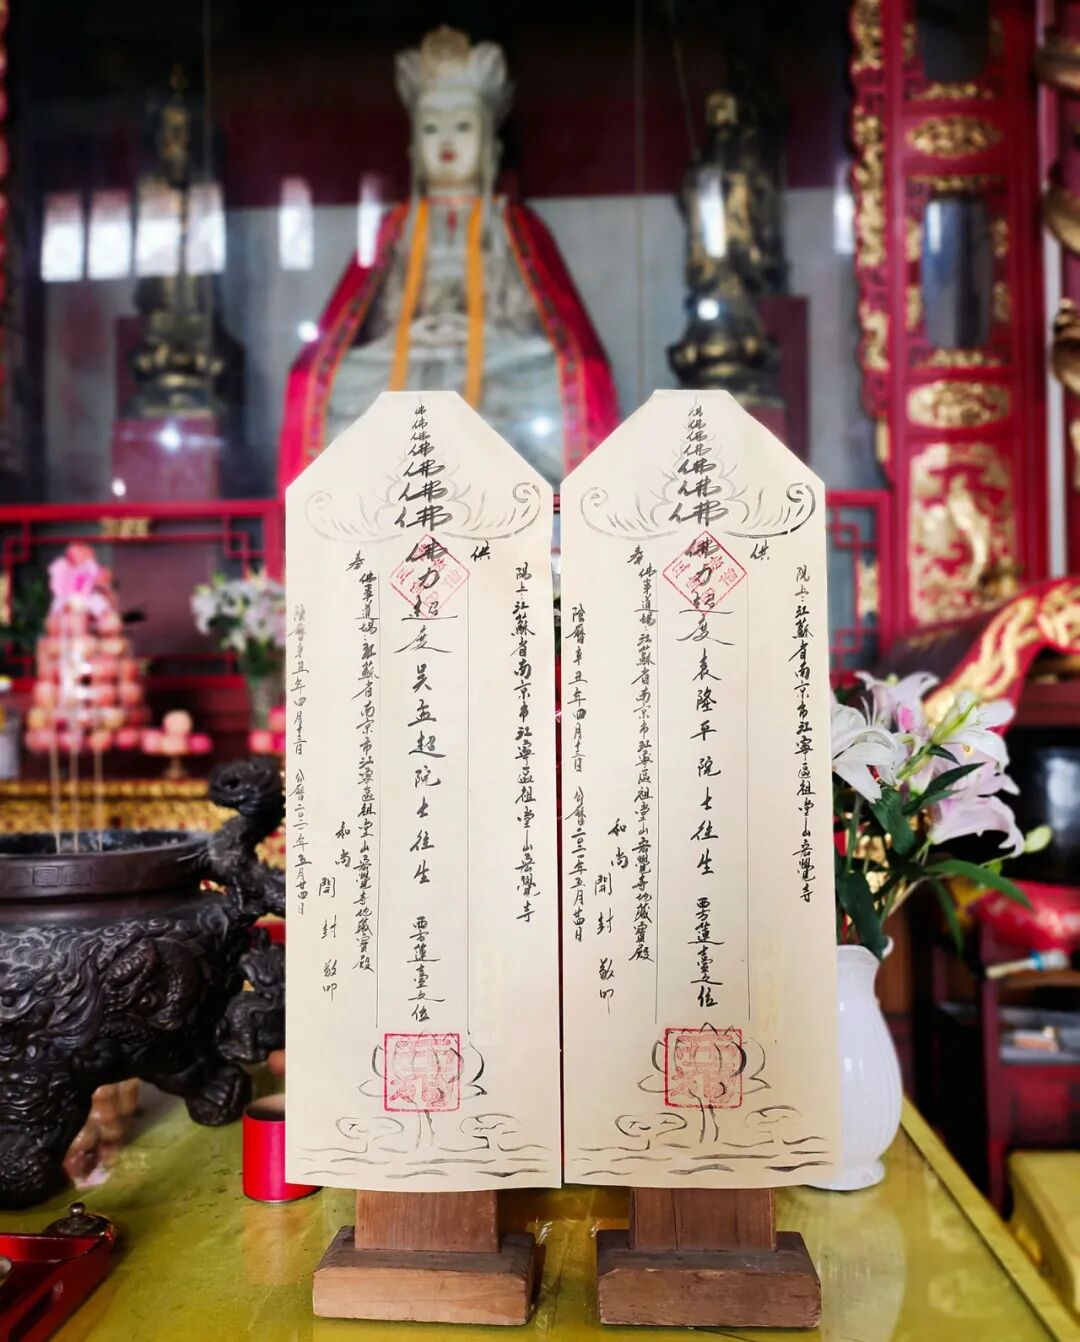 佛
佛
佛
佛
佛
佛
佛
佛力超度 吳孟超院士往生 西方蓮臺之位
供
陽上：江蘇省南京市江寧區祖堂山宏覺寺
奉
佛事道場：江蘇省南京市江寧區祖堂山宏覺寺地藏寶殿
和尚 開封 敬叩
陰曆辛丑年四月十三日 公曆二〇二一年五月廿四日
佛
佛
佛
佛
佛
佛
佛
佛力超度 袁隆平院士往生 西方蓮臺之位
供
陽上：江蘇省南京市江寧區祖堂山宏覺寺
奉
佛事道場：江蘇省南京市江寧區祖堂山宏覺寺地藏寶殿
和尚 開封 敬叩
陰曆辛丑年四月十三日 公曆二〇二一年五月廿四日